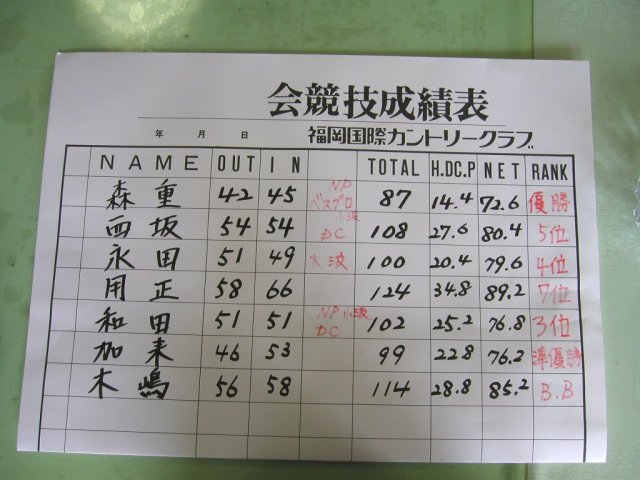 会競技成績表
年 月 日 福岡国際カントリークラブ
NAME OUT IN TOTAL H.DC.P NET RANK
森 重 42 45 NP ベスグロ 87 14.4 72.6 優勝
西 坂 54 54 小波 DC 108 27.6 80.4 5位
永 田 51 49 大波 100 20.4 79.6 4位
用 正 58 66 124 34.8 89.2 7位
和 田 51 51 NP 小波 DC 102 25.2 76.8 3位
加 来 46 53 99 22.8 76.2 準優勝
木 嶋 56 58 114 28.8 85.2 B.B